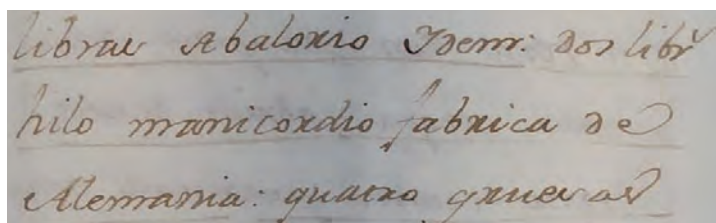 libras Abalorio Ydem: dos libr.^s
hilo manicordio fabrica de
Alemania: quatro gruesas